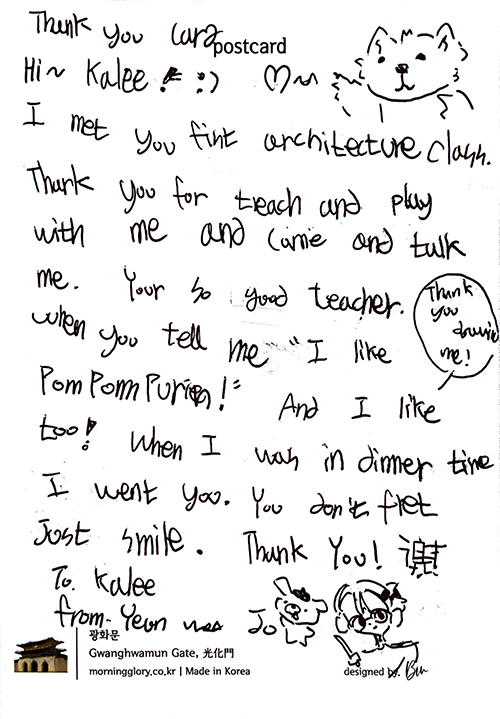 Thank you card
postcard
Hi~ Kalee! :)
I met you fint architecture class.
Thank you for treach and play
with me and came and talk
me. Your so good teacher.
when you tell me "I like
Thank
you
drawing
me!
PomPomPurien!"
And I like
too! When I was in dinner time
I went you. You don't fret
Just smile. Thank You!
To. Kalee
from. Yeun woo Jo
광화문
Gwanghwamun Gate, 光化門
morningglory.co.kr | Made in Korea
designed by. Bu